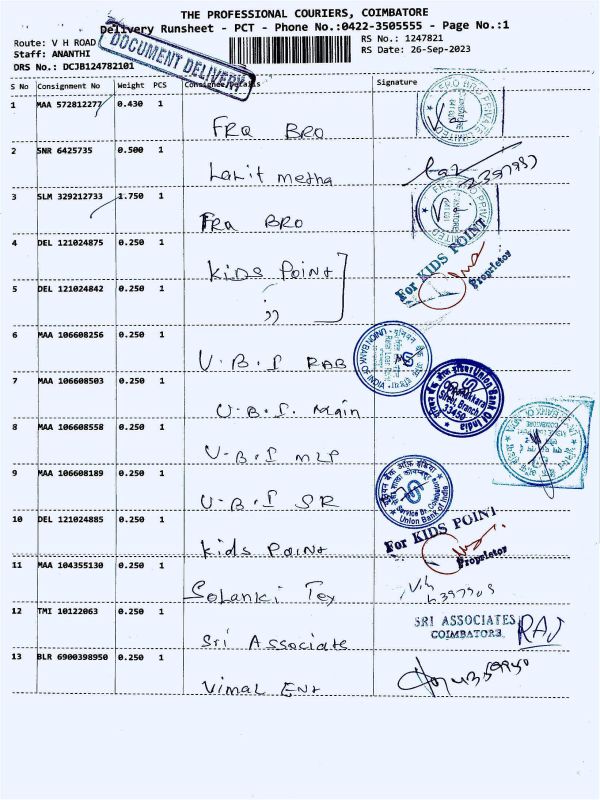 THE PROFESSIONAL COURIERS, COIMBATORE
Delivery Runsheet - PCT - Phone No.:0422-3505555 - Page No.:1
Route: V H ROAD
RS No.: 1247821
Staff: ANANTHI
RS Date: 26-Sep-2023
DRS No.: DCJB124782101
DOCUMENT DELIVERY
S No Consignment No Weight PCS Consignee Details Signature
1 MAA 572812277 0.430 1
FRA BRO
2 SNR 6425735 0.500 1
Lalit metha
3 SLM 329212733 1.750 1
FRA BRO
4 DEL 121024875 0.250 1
KIDS POINT
For KIDS POINT
Proprietor
5 DEL 121024842 0.250 1
,,
6 MAA 106608256 0.250 1
U.B.I RAB
UNION BANK OF INDIA
7 MAA 106608503 0.250 1
U.B.I. Main
Union Bank of India
8 MAA 106608558 0.250 1
U.B.I MLP
9 MAA 106608189 0.250 1
U.B.I SR
Union Bank of India
10 DEL 121024885 0.250 1
Kids Point
For KIDS POINT
Proprietor
11 MAA 104355130 0.250 1
Solanki Tex
12 TMI 10122063 0.250 1
Sri Associate
SRI ASSOCIATES
COIMBATORE
RAJ
13 BLR 6900398950 0.250 1
Vimal Ent